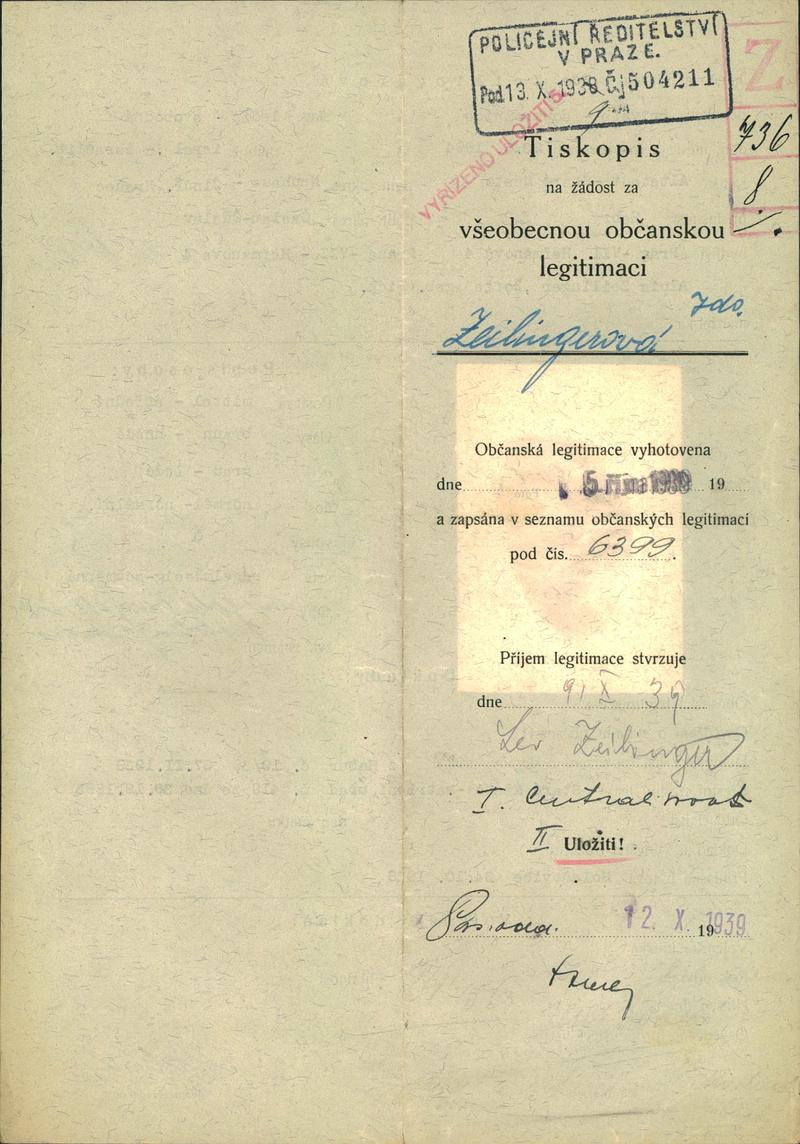 POLICEJNÍ ŘEDITELSTVÍ
V PRAZE.
Pod 13. X. 1938 Čj 504211
Z
736
8
VYŘÍZENO ULOŽITI
Tiskopis
na žádost za
všeobecnou občanskou
legitimaci
Zeilingerová
Občanská legitimace vyhotovena
dne 5. října 1939 19
a zapsána v seznamu občanských legitimací
pod čís. 6399.
Příjem legitimace stvrzuje
dne 9/ X 39
Lev Zeilinger
I.
II Uložiti!
12. X. 1939
19